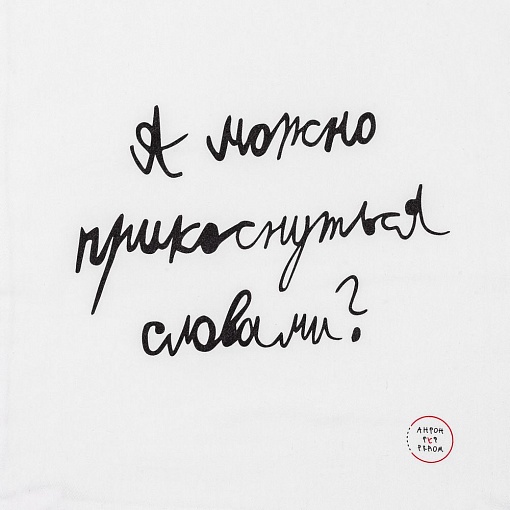 Я можно
прикоснуться
словами?
АНТОН
РЯДОМ